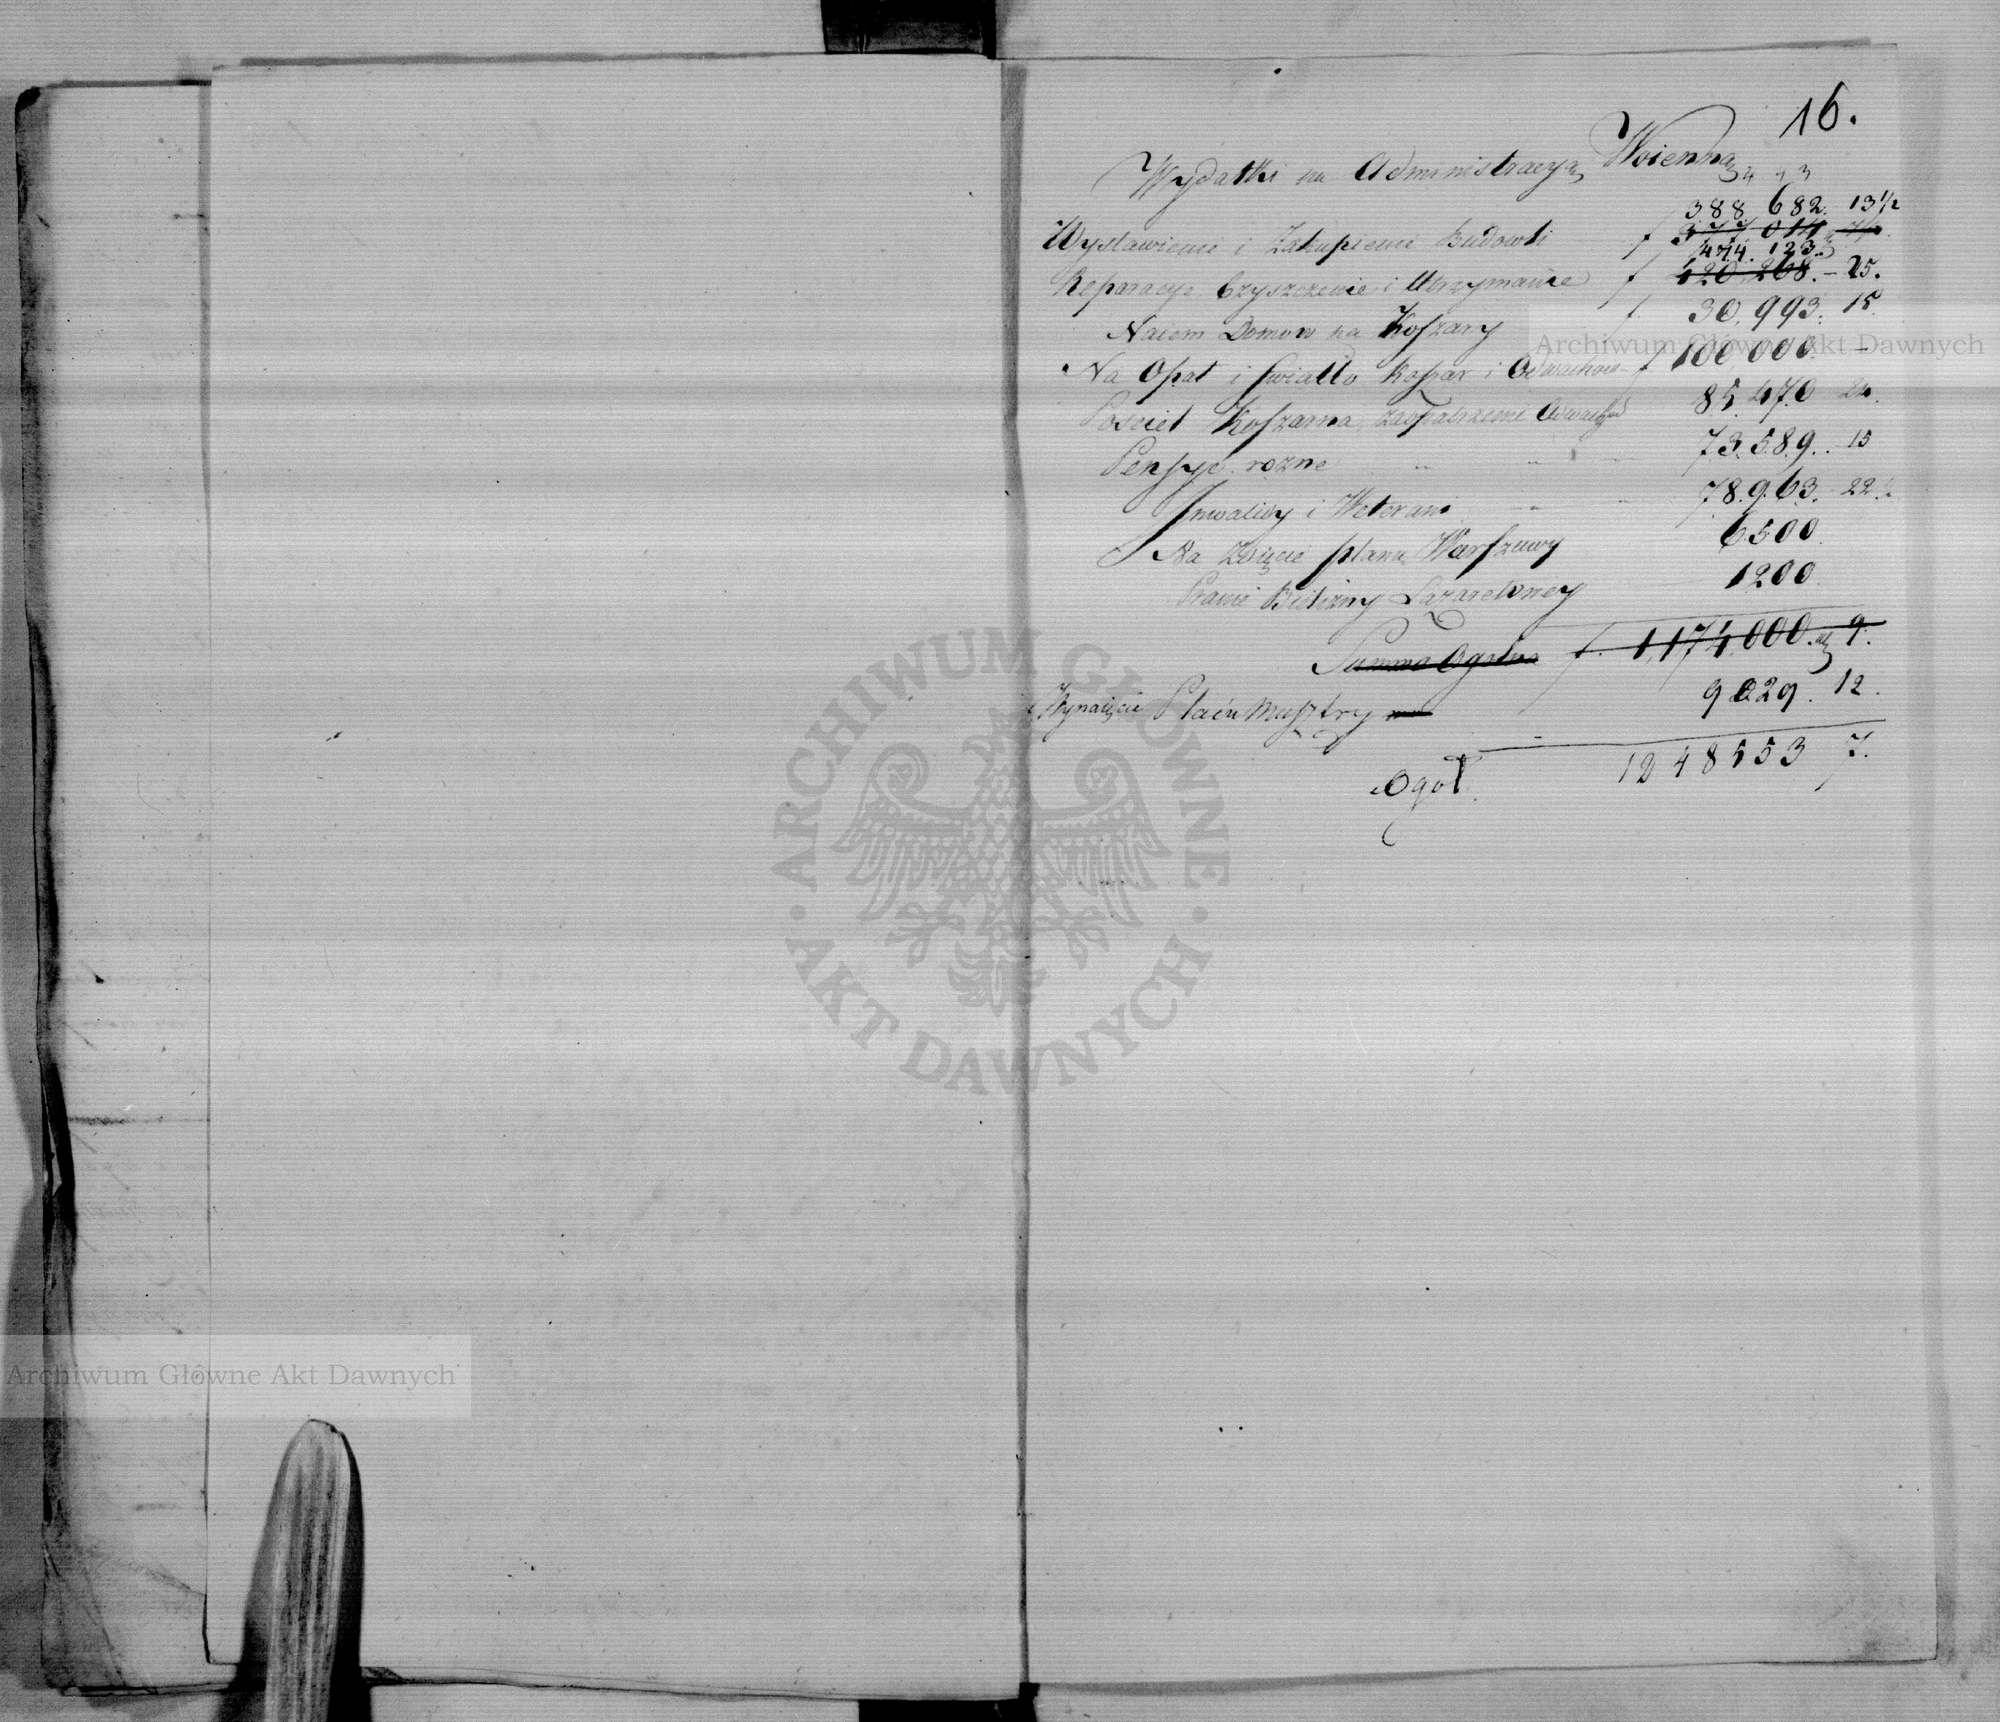 16.
Wydatki na Administracyą Woienną
388 682. 13½
Wystawienie i Zakupienie Budowli f 377 014
474. 123.
Reparacye Czyszczenie i Utrzymanie f 420,268. – 25.
Naiem Domow na Koszary f. 30,993. 15
Na Opał i swiatło Koszar i Odwachow f 100,000. –
Posciel Koszarna, zaopatrzenie Odwachow 85.470 24.
Pensye rozne 73.589. 15
Inwalidy i Weterani 78.963. 22½
Na Zdięcie planu Warszawy 6500
Pranie Bielizny Lazaretowey 1200
Summa Ogolna f. 1,174,000. 9.
Wynaięcie Placu Musztry 9029. 12.
Ogoł 1248553 7.
Archiwum Główne Akt Dawnych
ARCHIWUM GŁÓWNE
AKT DAWNYCH
Archiwum Główne Akt Dawnych